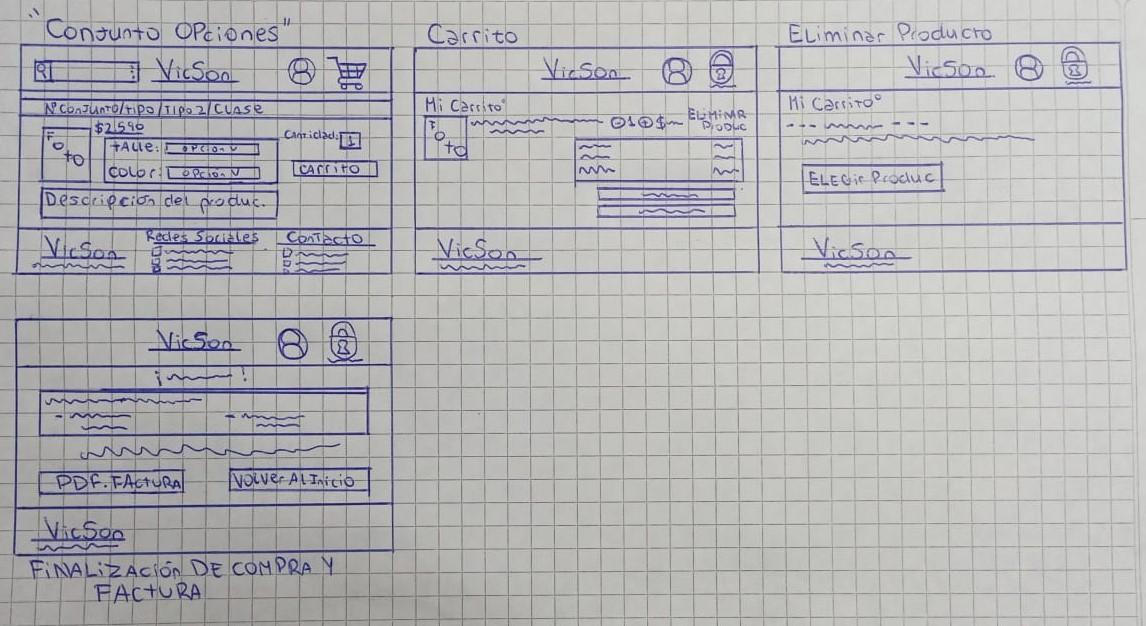 "Conjunto OPciones"
VicSon
NºConjunto/tipo/Tipo2/Clase
$2,590
Foto
tAlle: oPcion V
Color: oPcion V
Cantidad: 1
CArrito
Descripción del produc.
VicSon
Redes Sociales
Contacto
Carrito
VicSon
Mi Carrito
Foto
1 $
ELiMiNAR
Produc
VicSon
ELiminar Producto
VicSon
Mi Carrito
ELEGir Produc
VicSon
VicSon
¡ !
PDF.FActuRA
VolverALInicio
VicSon
FiNALizAcióN DE COMPRA Y
FActuRA